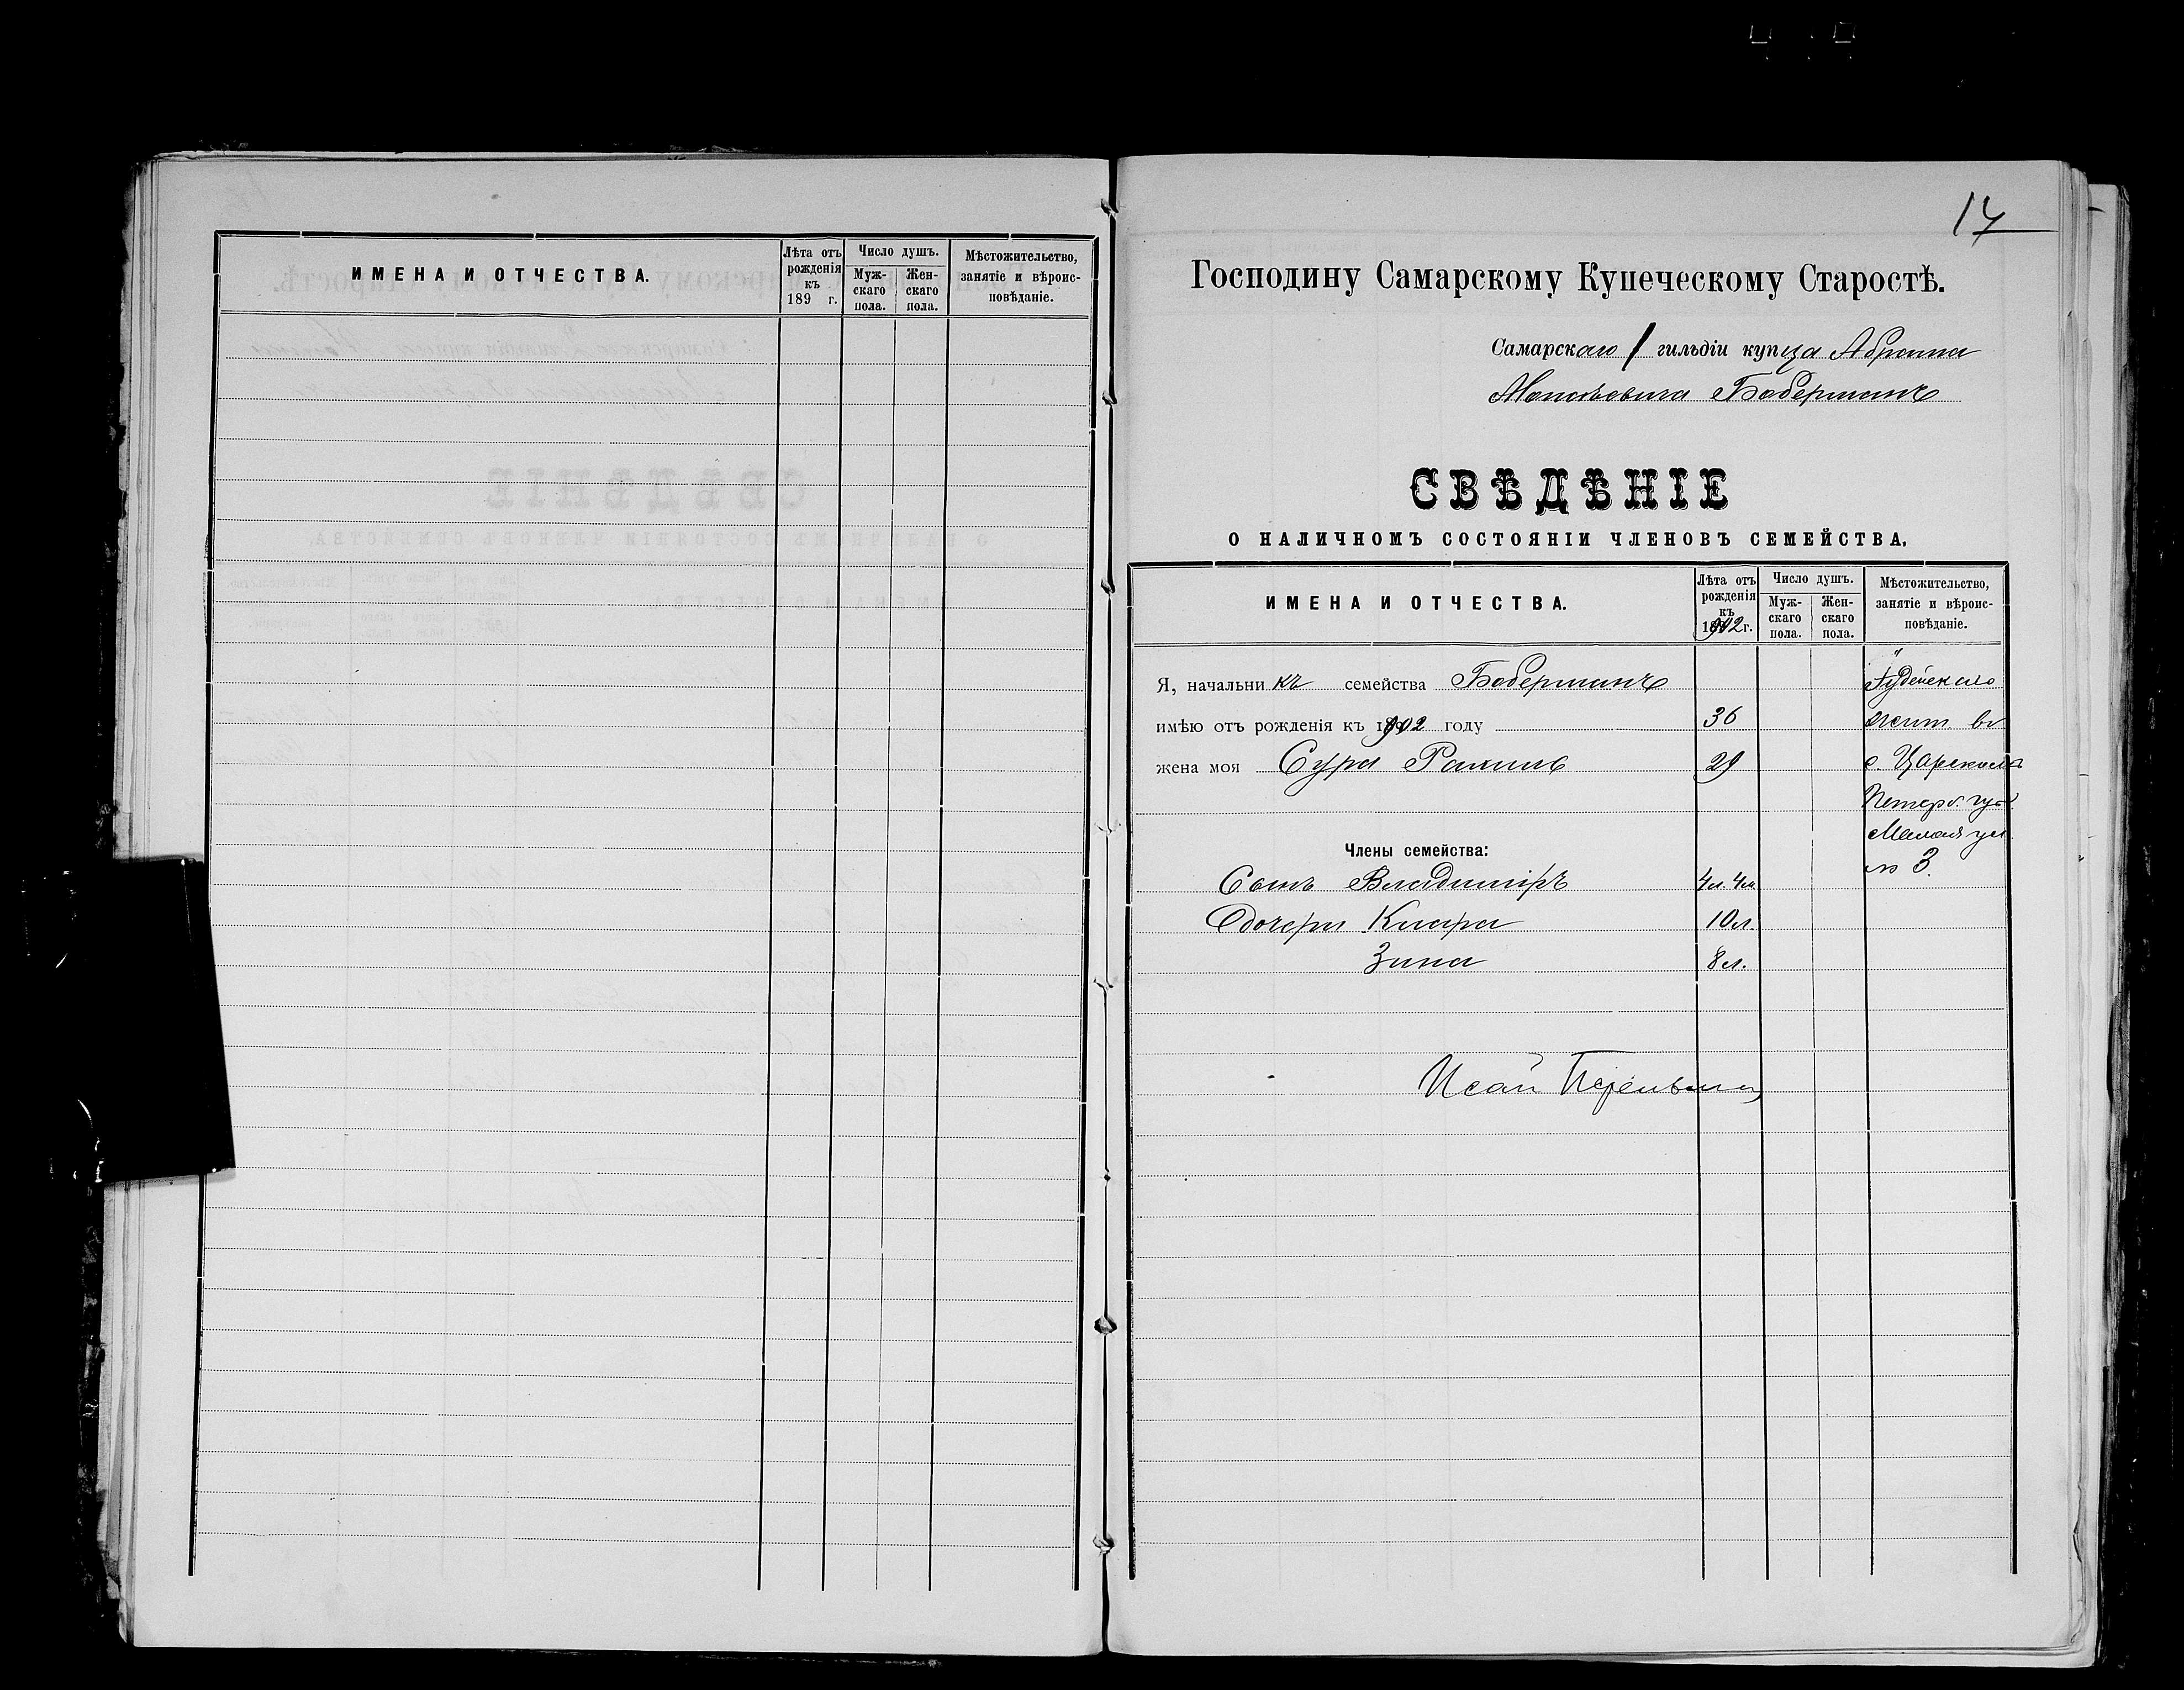 ИМЕНА И ОТЧЕСТВА.
Лѣта отъ рожденія къ 189 г.
Число душъ.
Мужскаго пола.
Женскаго пола.
Мѣстожительство, занятіе и вѣроисповѣданіе.
17
Господину Самарскому Купеческому Старостѣ.
Самарскаго 1 гильдіи купца Абрама
Боберманъ
СВѢДѢНІЕ
О НАЛИЧНОМЪ СОСТОЯНІИ ЧЛЕНОВЪ СЕМЕЙСТВА.
ИМЕНА И ОТЧЕСТВА.
Лѣта отъ рожденія къ 1902 г.
Число душъ.
Мужскаго пола.
Женскаго пола.
Мѣстожительство, занятіе и вѣроисповѣданіе.
Я, начальникъ семейства Боберманъ
Іудейскаго
имѣю отъ рожденія къ 1902 году 36
жит. въ
жена моя Сура Рахиль 29
с. Царскомъ
Петерб. губ.
Малая ул.
№ 3.
Члены семейства:
Сынъ Владиміръ 4 л. 4 м.
Дочери Клара 10 л.
Зина 8 л.
Исай